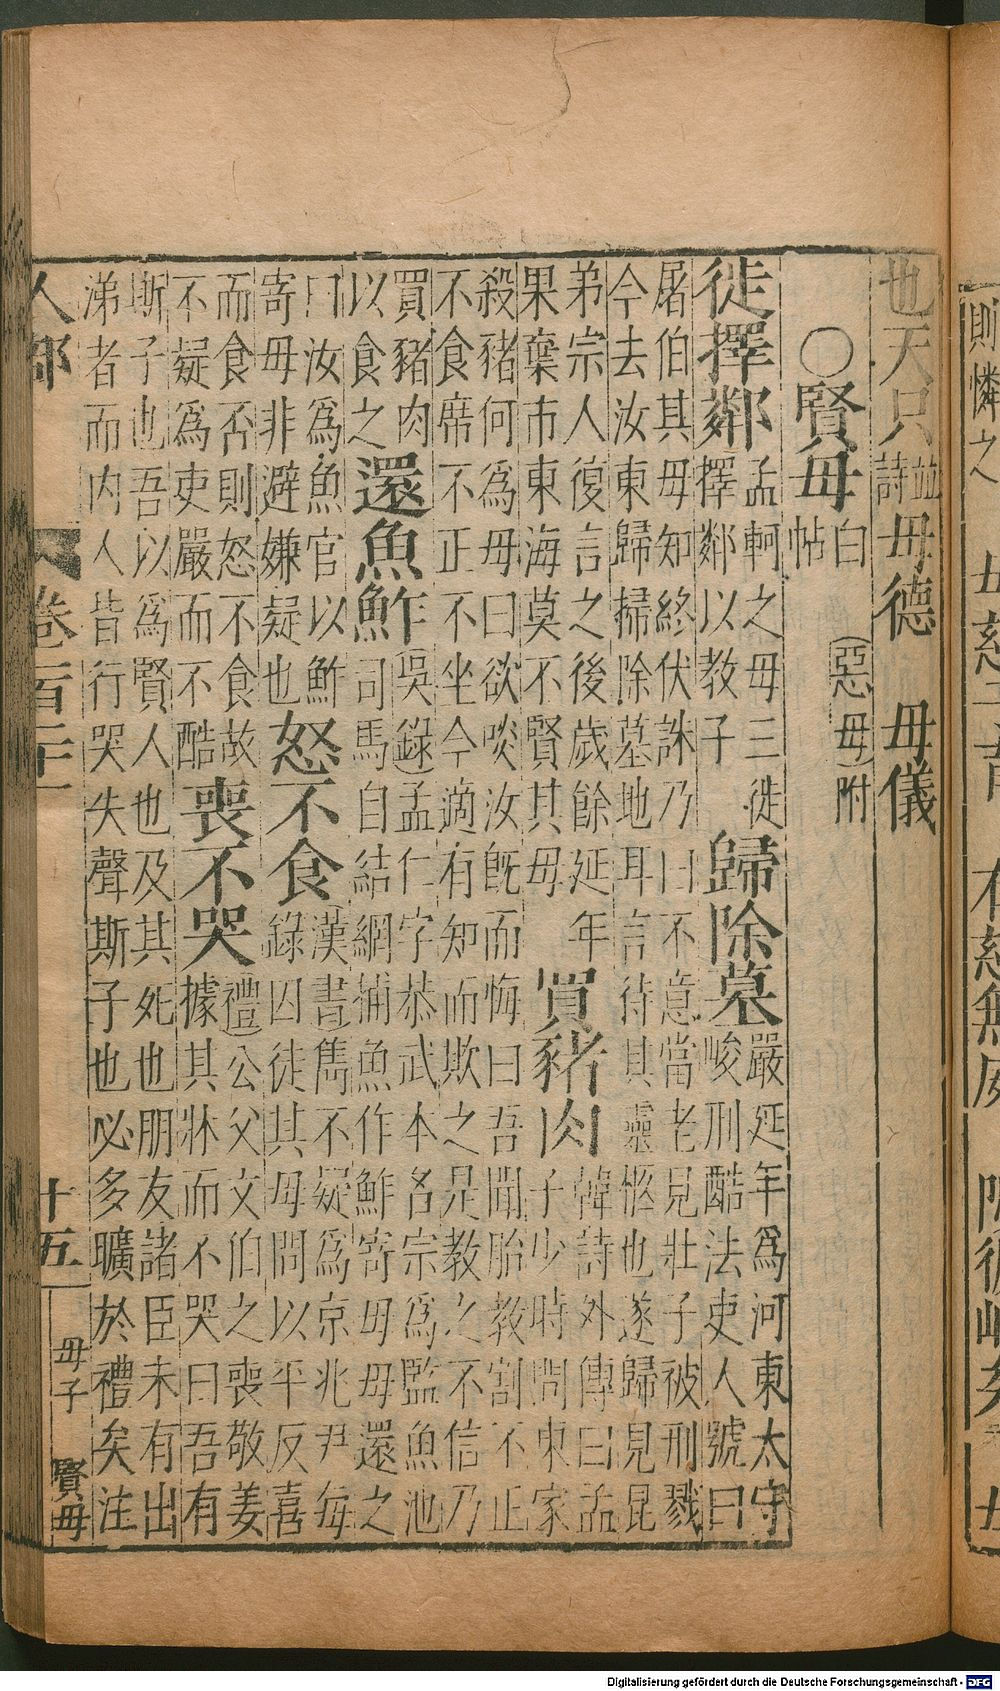 則憐之
也天只 並詩 母德 母儀
○賢母 白帖 (惡母)附
徙擇鄰 孟軻之母三徙
擇鄰以教子
歸除墓 嚴延年爲河東太守
峻刑酷法吏人號曰
屠伯其母知終伏誅乃曰不意當老見壯子被刑戮
今去汝東歸掃除墓地耳言待其靈柩也遂歸見昆
弟宗人復言之後歲餘延年
果棄市東海莫不賢其母
買豬肉 韓詩外傳曰孟
子少時問東家
殺豬何爲母曰欲啖汝旣而悔曰吾聞胎教割不正
不食席不正不坐今適有知而欺之是教之不信乃
買豬肉
以食之
還魚鮓 (吳錄)孟仁字恭武本名宗爲監魚池
司馬自結網捕魚作鮓寄母母還之
曰汝爲魚官以鮓
寄母非避嫌疑也
怒不食 (漢書)雋不疑爲京兆尹每
錄囚徒其母問以平反喜
而食否則怒不食故
不疑爲吏嚴而不酷
喪不哭 (禮)公父文伯之喪敬姜
據其牀而不哭曰吾有
斯子也吾以爲賢人也及其死也朋友諸臣未有出
涕者而内人皆行哭失聲斯子也必多曠於禮矣注
人部 卷 十五 母子 賢母
Digitalisierung gefördert durch die Deutsche Forschungsgemeinschaft - DFG